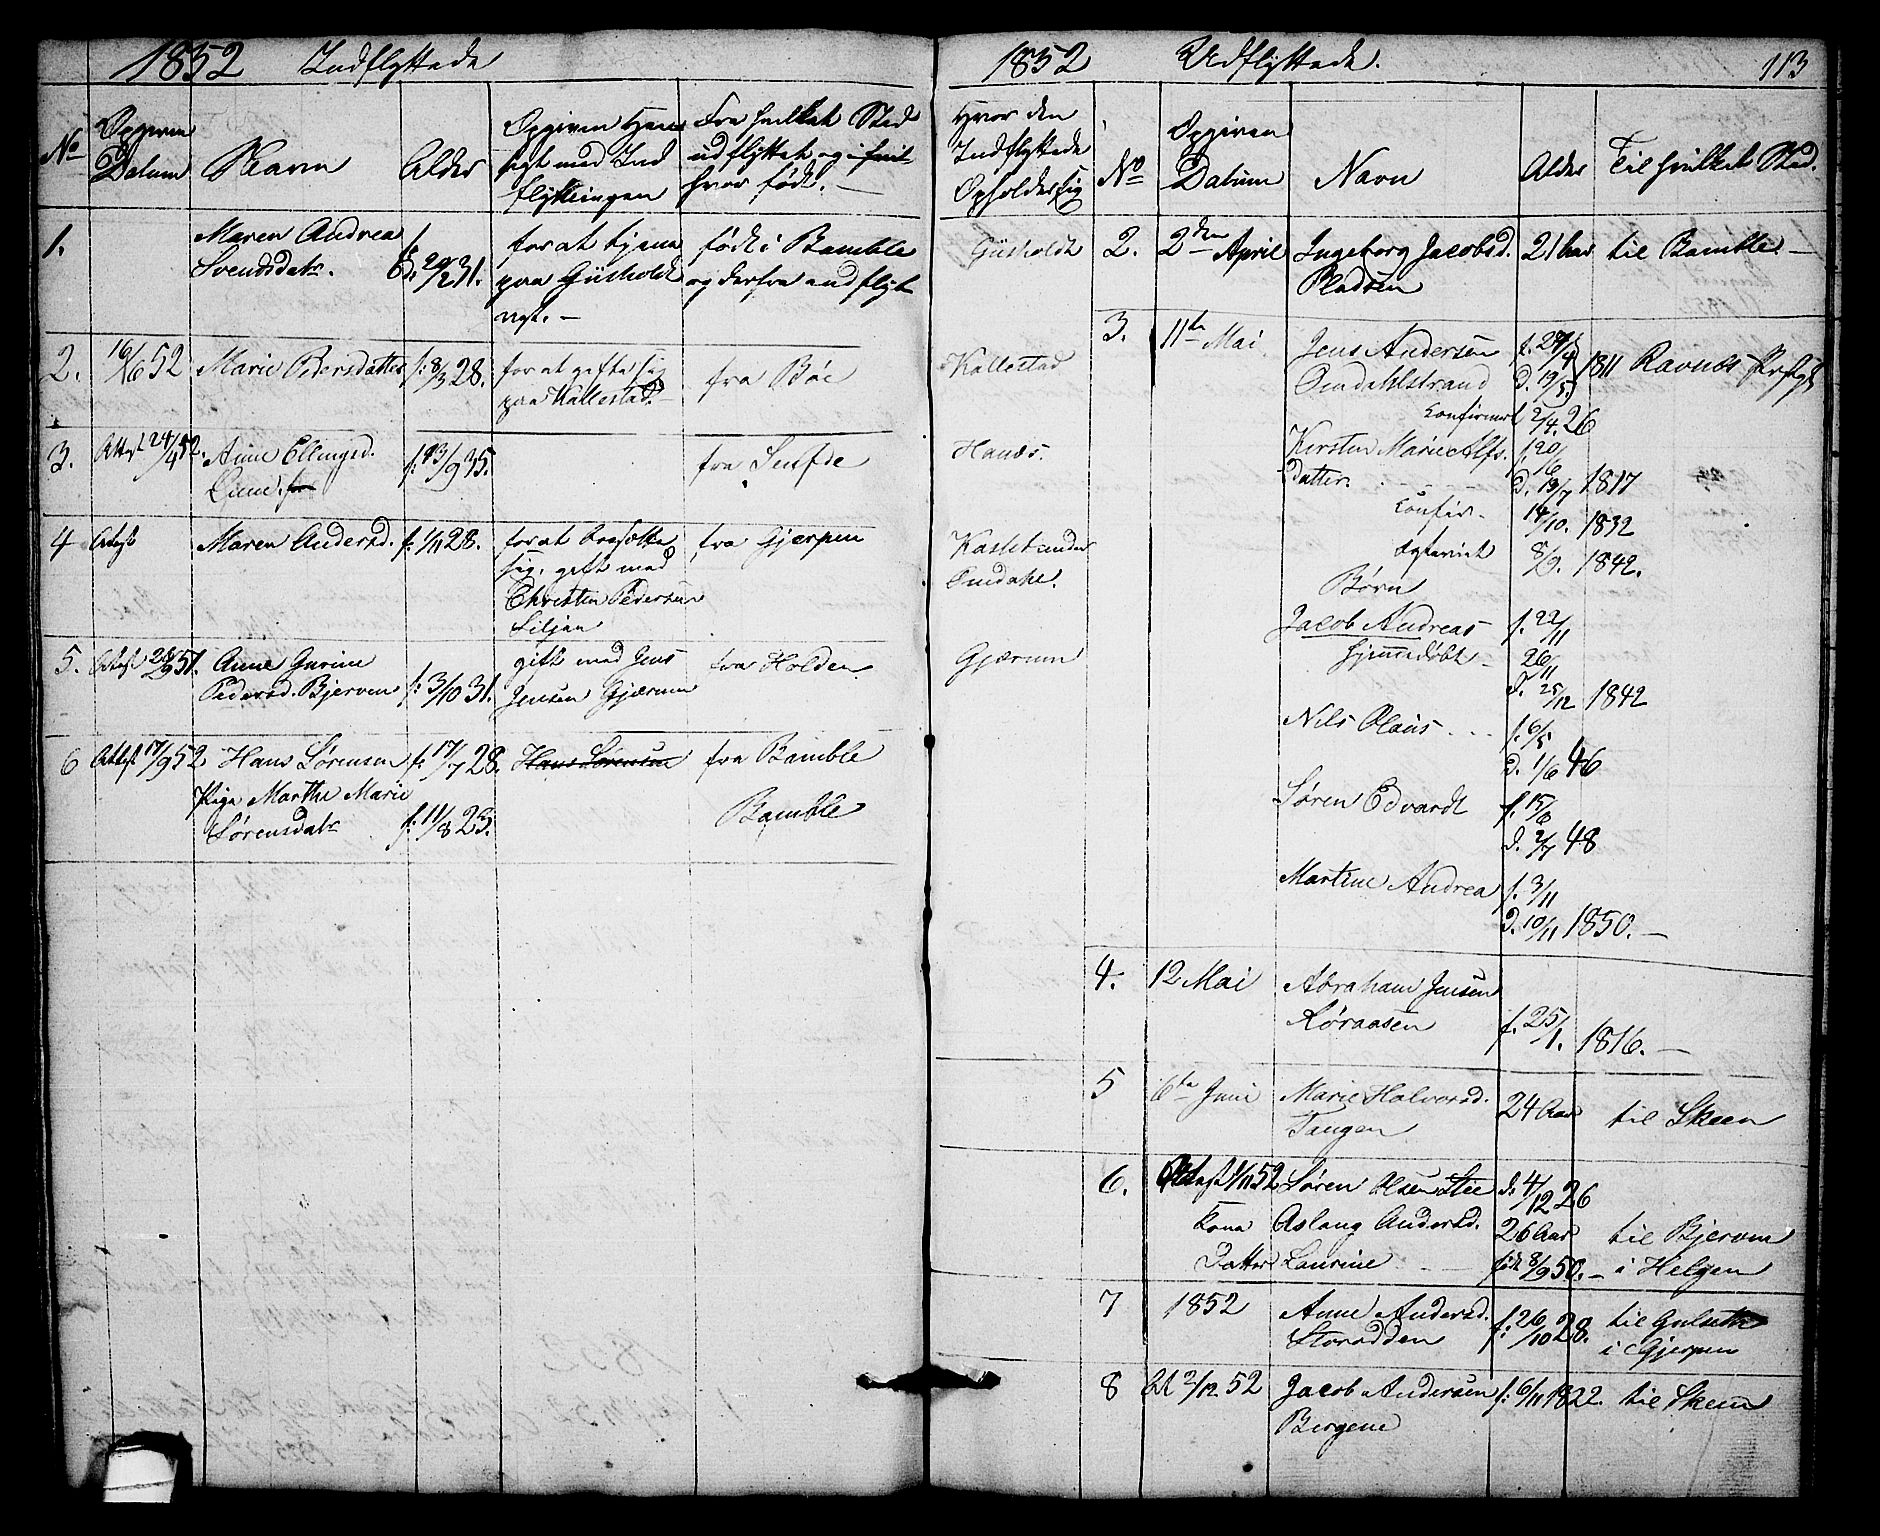 1852 Indflyttede
No
Opgiven Datum
Navn
Alder
Opgiven Hen
sigt med Ind
flytningen
Fra hvilket Sted
udflyttet og i
hvor født. —
Hvor den
Indflyttede
Opholder sig
1.
Maren Andrea
Svendsdatr.
f.
D. 20/2 31.
for at tjene
paa Güsholdt
født i Bamble
og derfra
Güsholdt
2. 16/6 52 Marie Pedersdatter f. 8/3 28.
for at gifte sig
paa Kallestad.
fra Böe
Kallestad
3. Attest 24/4 52. Anne Ellingsd.
Lund.
f. 13/9 35.
fra
Hanes.
4 Attest Maren Andersd. f. 1/11 28.
for at bosætte
sig, gift med
Christen Pedersen
Siljan
fra Gjerpen
Kaste under
Omdahl.
5. Attest 28/9 51. Anne Gurine
Pedersd. Bjerven f. 3/10 31.
gift med Jens
Jensen Gjærum
fra Holden
Gjærum
6 Attest 17/9 52 Hans Sörensen f. 17/7 28. Hans Sörensen fra Bamble
Pige Marthe Marie
Sörensdatr f. 11/8 23.
Bamble
1852 Udflyttede. 113
No
Opgiven
Datum
Navn
Alder
Til hvilket Sted.
2. 2den April Ingeborg Jacobsd. 21 Aar til Bamble. —
Pladsen
3. 11te Mai. Jens Andersen
Omdahlstrand
D. 19/5 1811
Confirmert 2/4. 26
Kirsten Marie Alfs
datter.
f. 20/6
D. 13/7 1817
Confir. 14/10. 1832
8/9. 1842.
Børn
Jacob Andreas f. 22/11
hjemmedöbt 26/11
d. 25/12 1842
Nils Olaus f. 6/5
D. 1/6 46
Sören Edvardt f. 15/6
d. 2/7 48
Martine Andrea f. 3/11
D. 10/11 1850. —
4. 12 Mai Abraham Jensen
Röraasen f. 25/1. 1816. —
5 6te Juni Marie Halvorsd. 24 Aar til Skeen
Tangen
6. Attest 1/11 52 Sören Olsen Stie d. 4/12 26
Kone Aslaug Andersd. 26 Aar til Bjerven
Datter Laurine født 8/9 50. — i Helgen
7 1852 Anne Andersd. f. 26/10 28. til Gulseth
Storødden i Gjerpen
8 At 2/12 52 Jacob Andersen f. 6/11 1822. til Skeen
Bergene